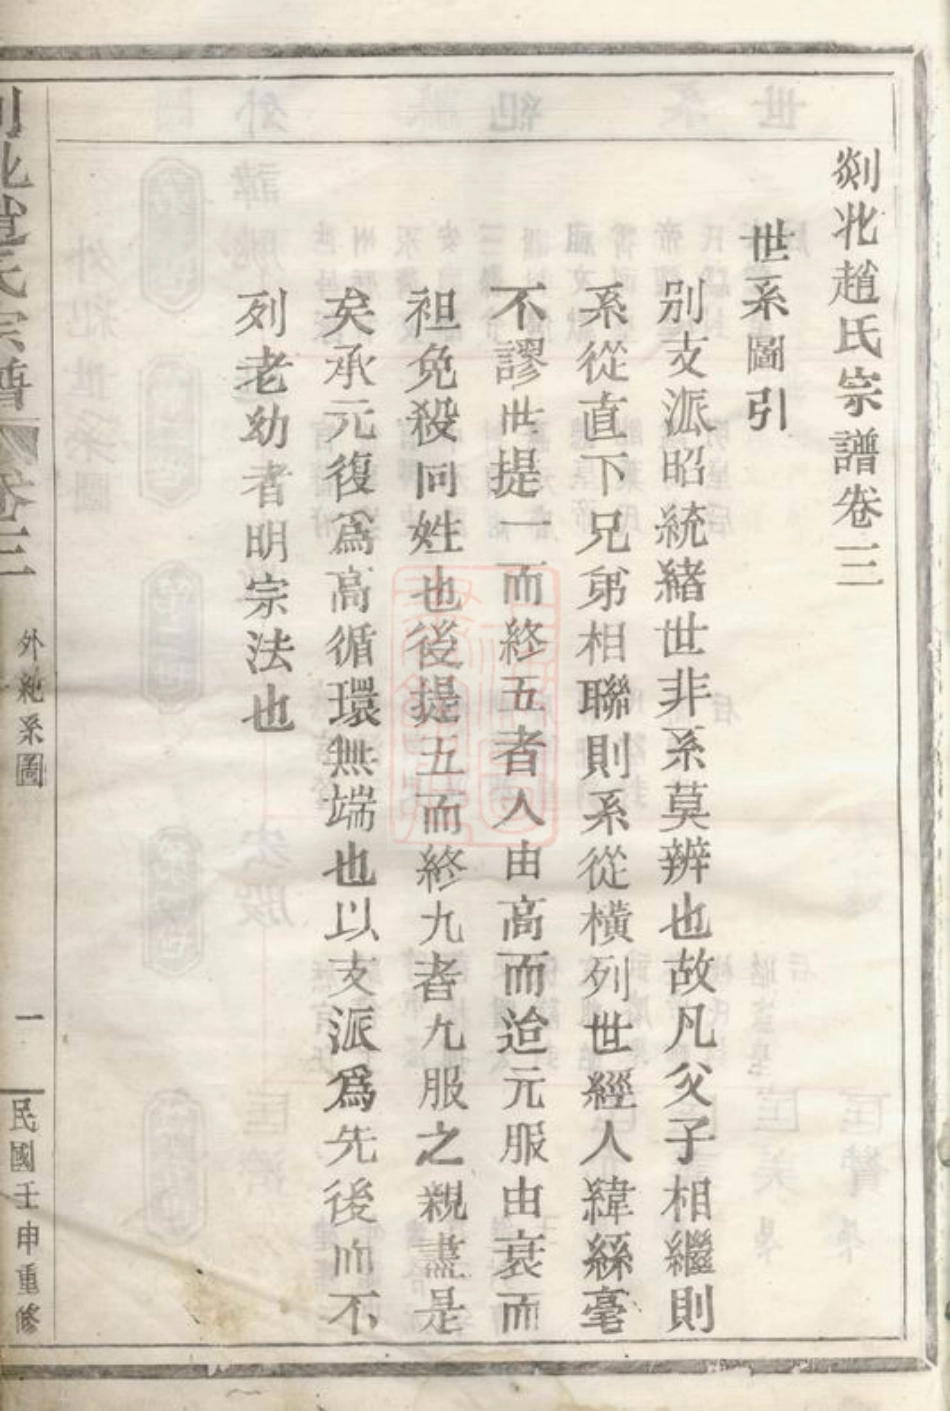 剡北趙氏宗譜卷三
世系圖引
別支派昭統緒世非系莫辨也故凡父子相繼則
系從直下兄弟相聯則系從橫列世經人緯絲毫
不謬世提一而終五者人由高而迨元服由衰而
袒免殺同姓也後提五而終九者九服之親盡是
矣承元復爲高循環無端也以支派爲先後而不
列老幼者明宗法也
剡北趙氏宗譜
卷三
外紀系圖
一
民國壬申重修